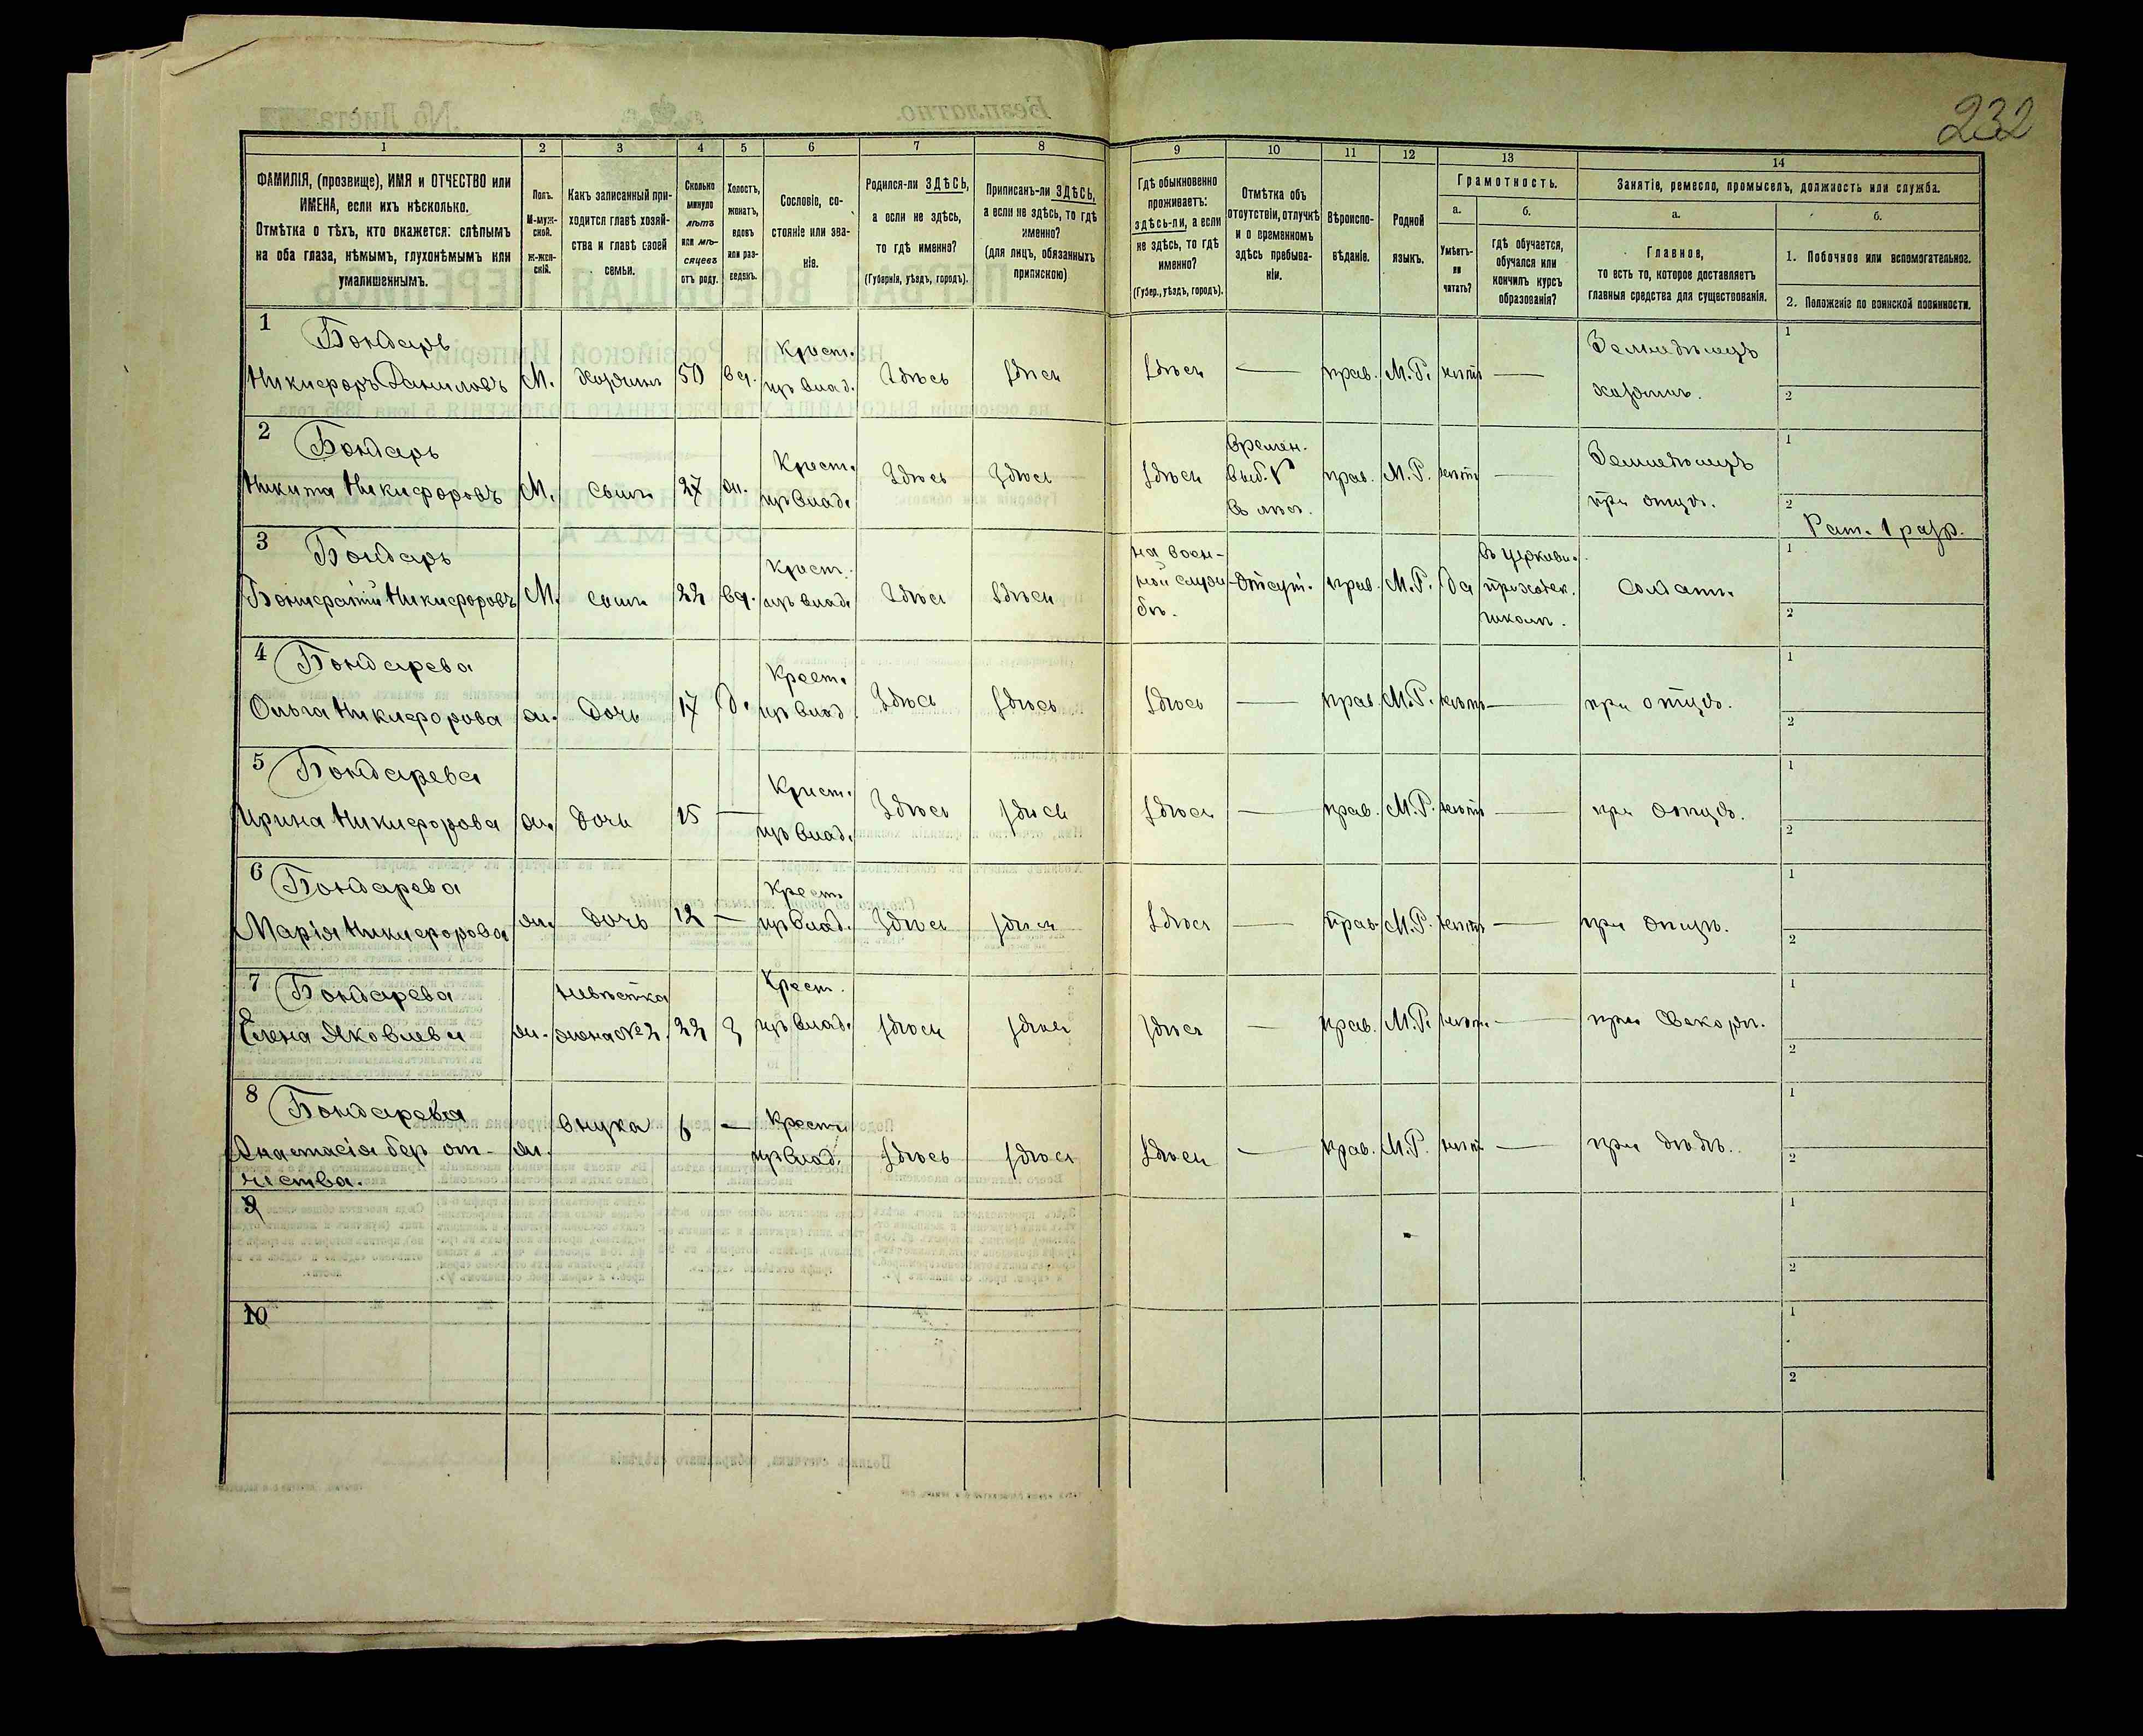 232
1 2 3 4 5 6 7 8 9 10 11 12 13 14
ФАМИЛІЯ, (прозвище), ИМЯ и ОТЧЕСТВО или
ИМЕНА, если ихъ нѣсколько.
Отмѣтка о тѣхъ, кто окажется: слѣпымъ
на оба глаза, нѣмымъ, глухонѣмымъ или
умалишеннымъ.
Полъ.
М-муж-
ской.
Ж-жен-
скій.
Какъ записанный при-
ходится главѣ хозяй-
ства и главѣ своей
семьи.
Сколько
минуло
лѣтъ
или мѣ-
сяцевъ
отъ роду.
Холостъ,
женатъ,
вдовъ
или раз-
веденъ.
Сословіе, со-
стояніе или зва-
ніе.
Родился-ли ЗДѢСЬ,
а если не здѣсь,
то гдѣ именно?
(Губернія, уѣздъ, городъ).
Приписанъ-ли ЗДѢСЬ,
а если не здѣсь, то гдѣ
именно?
(для лицъ, обязанныхъ
припискою)
Гдѣ обыкновенно
проживаетъ:
здѣсь-ли, а если
не здѣсь, то гдѣ
именно?
(Губер., уѣздъ, городъ).
Отмѣтка объ
отсутствіи, отлучкѣ
и о временномъ
здѣсь пребыва-
ніи.
Вѣроиспо-
вѣданіе.
Родной
языкъ.
Грамотность.
а.
Умѣетъ-
ли
читать?
б.
гдѣ обучается,
обучался или
кончилъ курсъ
образованія?
Занятіе, ремесло, промыселъ, должность или служба.
а.
Главное,
то есть то, которое доставляетъ
главныя средства для существованія.
б.
1. Побочное или вспомогательное.
2. Положеніе по воинской повинности.
1 Бондарь Крест. Земледѣлецъ 1
Никифоръ Даниловъ М. хозяинъ 50 вд. изъ влад. Здѣсь здѣсь здѣсь — прав. М.Р. нѣтъ — хозяинъ. 2
2 Бондарь Крест. Времен. Земледѣлецъ 1
Никита Никифоровъ М. сынъ 27 ж. изъ влад. Здѣсь Здѣсь здѣсь выб. прав. М.Р. нѣтъ — при отцѣ. 2
Рат. 1 разр.
3 Бондарь Крест. на воен- въ церковн. 1
Никифоровъ М. сынъ 22 вд. изъ влад. Здѣсь здѣсь ной служ- Отсут. прав. М.Р. да приходск. Солдатъ. 2
бѣ. школѣ.
4 Бондарева Крест. 1
Ольга Никифорова ж. дочь 17 д. изъ влад. Здѣсь здѣсь здѣсь — прав. М.Р. нѣтъ — при отцѣ. 2
5 Бондарева Крест. 1
Ирина Никифорова ж. дочь 15 — изъ влад. Здѣсь здѣсь здѣсь — прав. М.Р. нѣтъ — при отцѣ. 2
6 Бондарева Крест. 1
Марія Никифорова ж. дочь 12 — изъ влад. Здѣсь здѣсь здѣсь — прав. М.Р. нѣтъ — при отцѣ. 2
7 Бондарева невѣстка Крест. 1
Елена Яковлева ж. жена №2. 22 З изъ влад. здѣсь здѣсь здѣсь — прав. М.Р. нѣтъ — при свекорѣ. 2
8 Бондарева внука 6 — Крест. 1
Анастасія без от- ж. изъ влад. здѣсь здѣсь здѣсь — прав. М.Р. нѣтъ — при дѣдѣ. 2
чества.
9 1
2
10 1
2